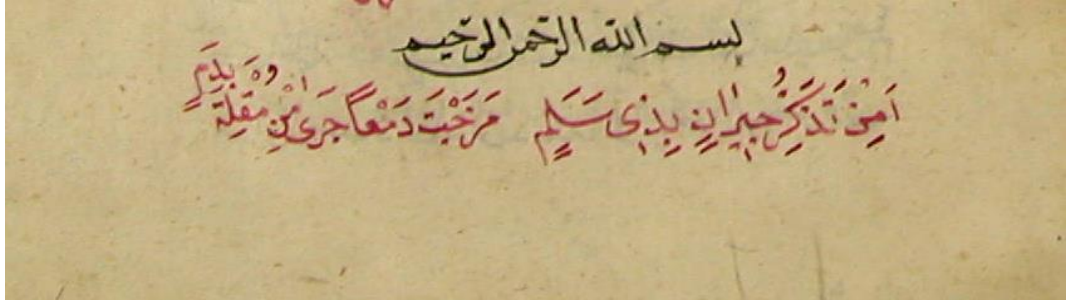 بسم الله الرحمن الرحيم
اَمِنْ تَذَكُّرِ جِيرَانٍ بِذِى سَلَمٍ مَزَجْتَ دَمْعاً جَرَى مِنْ مُقْلَةٍ بِدَمِ